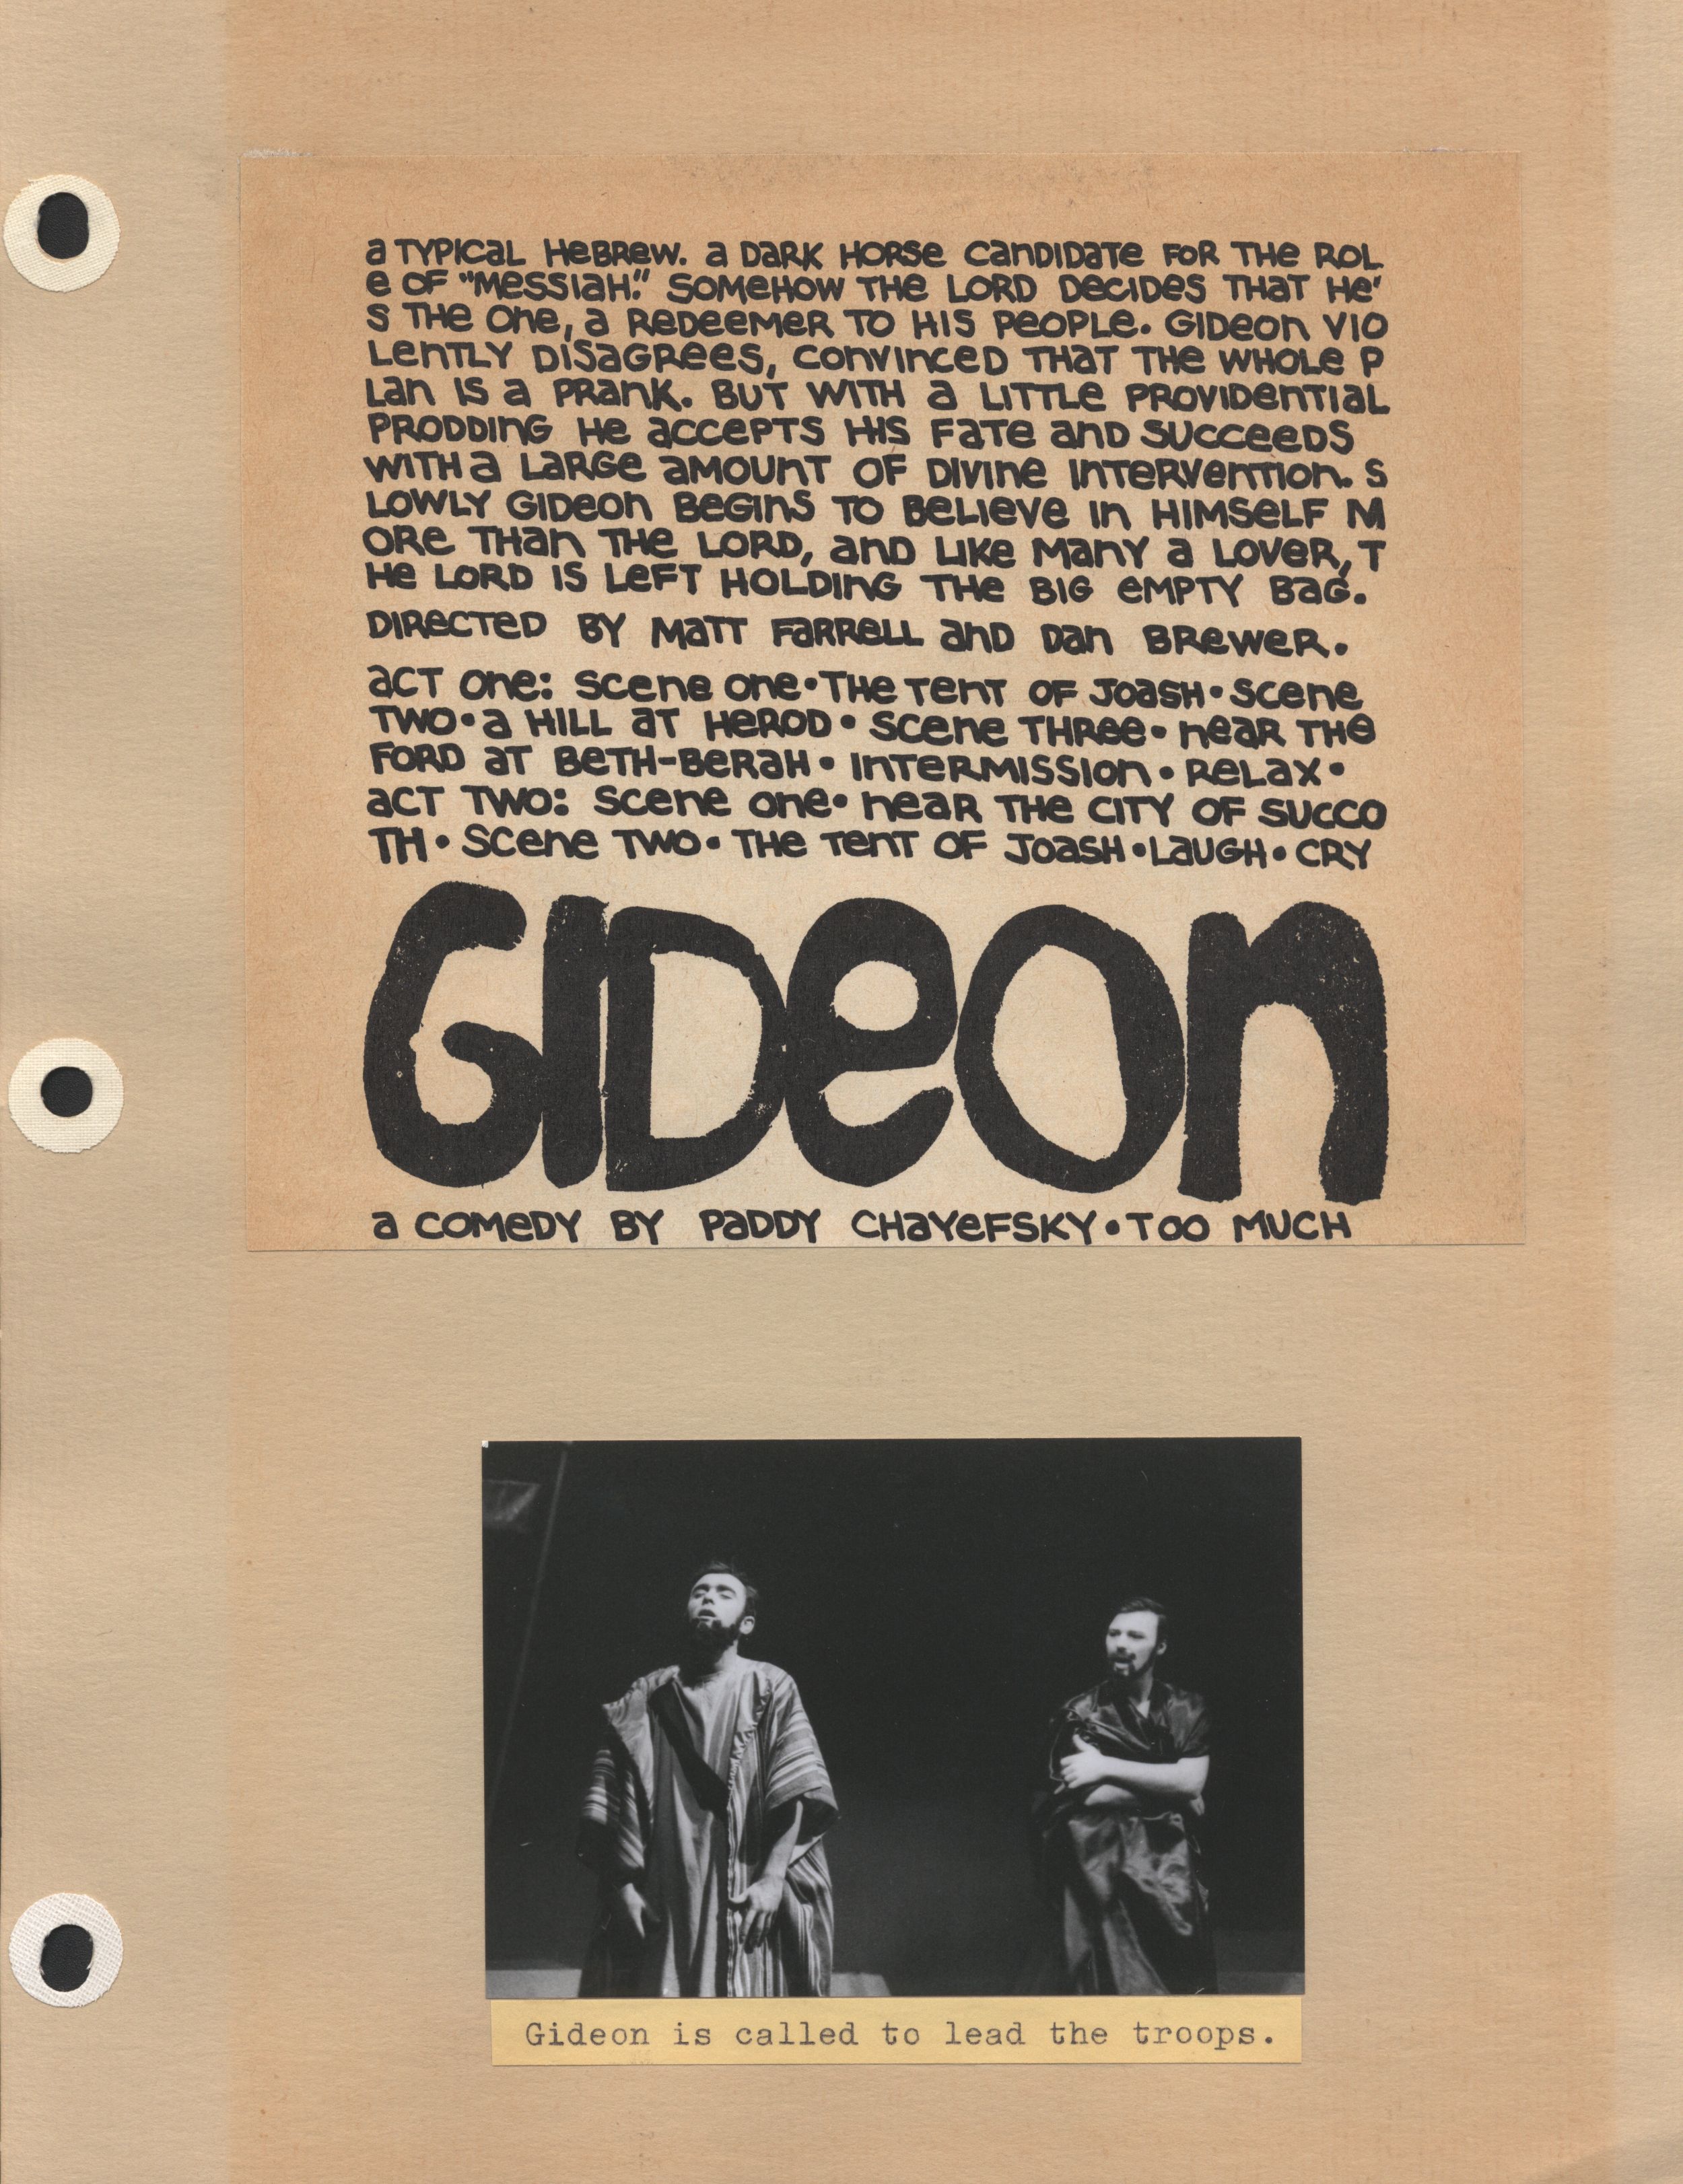 a TYPICaL HeBReW. a DaRK HORSe CanDIDaTe FOR THe ROL
e OF "MeSSIaH." SOMeHOW THe LORD DeCIDeS THaT He'
S THe One, a ReDeeMeR TO HIS PeOPLe. GIDeOn VIO
LenTLY DISaGRees, COnVInCeD THaT THe WHOLe P
Lan IS a PRanK. BUT WITH a LITTLe PROVIDenTIaL
PRODDInG He aCCePTS HIS FaTe anD SUCCeeDS
WITH a LaRGe aMOUnT OF DIVIne InTeRVenTIOn. S
LOWLY GIDeOn BeGInS TO BeLIeVe In HIMSeLF M
ORe THan THe LORD, anD LIKe ManY a LOVeR, T
He LORD IS LeFT HOLDInG THe BIG eMPTY BaG.
DIReCTeD BY MaTT FaRReLL anD Dan BReWeR.
aCT One: SCene One•THe TenT OF JOaSH•SCene
TWO•a HILL aT HeROD•SCene THRee•neaR THe
FORD aT BeTH-BeRaH•InTeRMISSIOn•ReLaX•
aCT TWO: SCene One•neaR THe CITY OF SUCCO
TH•SCene TWO•THe TenT OF JOaSH•LaUGH•CRY
GIDeOn
a COMeDY BY PaDDY CHaYeFSKY•TOO MUCH
Gideon is called to lead the troops.